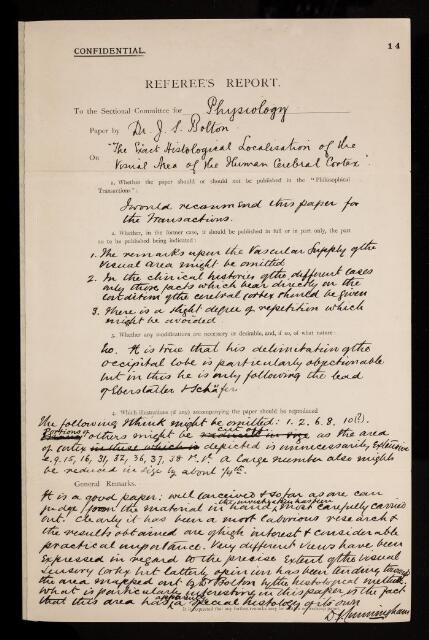 CONFIDENTIAL.
14
REFEREE'S REPORT.
To the Sectional Committee for Physiology
Paper by Dr. J. S. Bolton
On "The Exact Histological Localisation of the
Visual Area of the Human Cerebral Cortex".
1. Whether the paper should or should not be published in the "Philosophical
Transactions":
I would recommend this paper for
the Transactions.
2. Whether, in the former case, it should be published in full or in part only, the part
to be published being indicated:
1. The remarks upon the Vascular Supply of the
visual area might be omitted
2. In the clinical histories of the different cases
only those facts which bear directly on the
condition of the cerebral cortex should be given
3. There is a slight degree of repetition which
might be avoided
3. Whether any modifications are necessary or desirable, and, if so, of what nature:
No. It is true that his delimitation of the
occipital lobe is particularly objectionable
but in this he is only following the lead
of Eberstaller & Schäfer.
4. Which illustrations (if any) accompanying the paper should be reproduced
The following I think might be omitted: 1. 2. 6. 8. 10(?).
Portions of others might be cut off as the area
of cortex depicted is unnecessarily extensive
2, 9. 15, 16, 31, 32, 36, 37, 38 A large number also might
be reduced in size by about
General Remarks.
It is a good paper: well conceived & so far as we can
judge from the material in hand, the investigation has been most carefully carried
out. Clearly it has been a most laborious research &
the results obtained are of high interest & considerable
practical importance. Very different views have been
expressed in regard to the precise extent of the visual
sensory cortex but latterly opinion has been tending towards
the area mapped out by Dr Bolton by the histological method.
What is particularly interesting in this paper is the fact
that this area has apparently a special histology of its own
It is requested that any further remarks be written
D. J. Cunningham